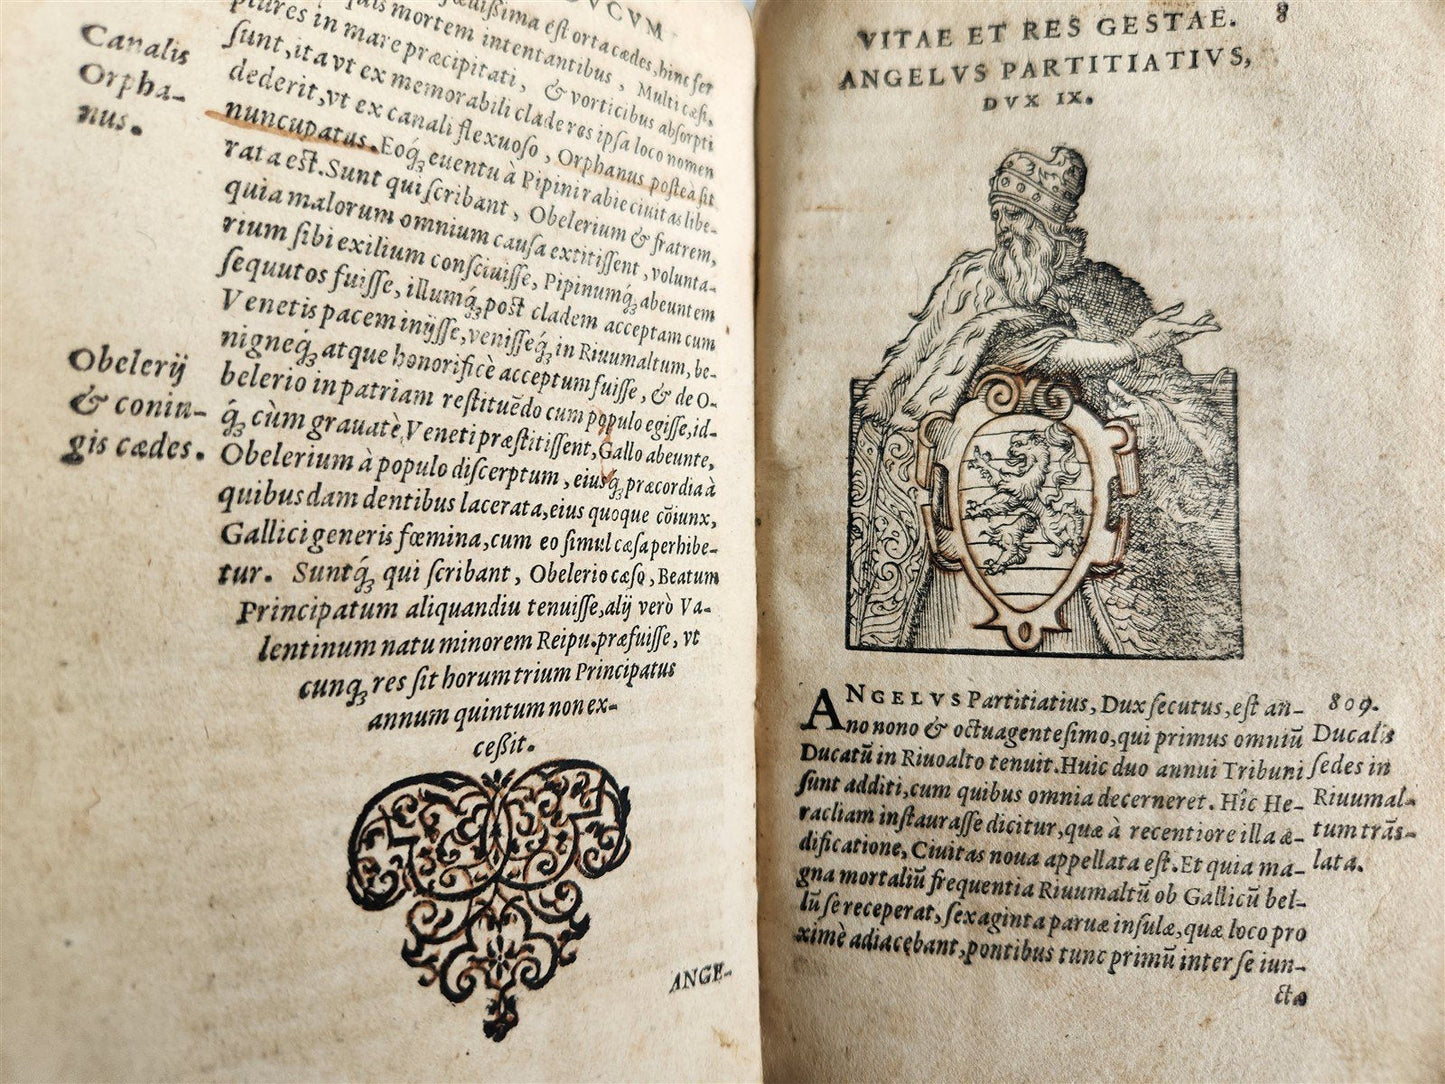 DVCVM
quis mortem intentantibus, Multi cæsi,
plures in mare præcipitati, & vorticibus absorpti
sunt, ita vt ex memorabili clade res ipsa loco nomen
dederit, vt ex canali flexuoso, Orphanus posteà sit
nuncupatus. Eoq́ꝫ euentu à Pipini rabie ciuitas libe-
rata est. Sunt qui scribant, Obelerium & fratrem,
quia malorum omnium causa extitissent, volunta-
rium sibi exilium consciuisse, Pipinumq́ꝫ abeuntem
sequutos fuisse, illumq́ꝫ post cladem acceptam cum
Venetis pacem inijsse, venisseq́ꝫ in Riuumaltum, be-
nigneq́ꝫ atque honorificè acceptum fuisse, & de O-
belerio in patriam restituẽdo cum populo egisse, id-
q́ꝫ cùm grauatè Veneti præstitissent, Gallo abeunte,
Obelerium à populo discerptum, eiusq́ꝫ præcordia à
quibusdam dentibus lacerata, eius quoque cõiunx,
Gallici generis fœmina, cum eo simul cæsa perhibe-
tur. Suntq́ꝫ qui scribant, Obelerio cæso, Beatum
Principatum aliquandiu tenuisse, alij verò Va-
lentinum natu minorem Reipu. præfuisse, vt
cunq́ꝫ res sit horum trium Principatus
annum quintum non ex-
ceßit.
ANGE-
Canalis
Orpha-
nus.
Obelerij
& coniu-
gis cædes.
VITAE ET RES GESTAE. 8
ANGELVS PARTITIATIVS,
DVX IX.
ANGELVS Partitiatius, Dux secutus, est an-
no nono & octuagentesimo, qui primus omniũ
Ducatũ in Riuoalto tenuit. Huic duo annui Tribuni
sunt additi, cum quibus omnia decerneret. Hîc He-
racliam instaurasse dicitur, quæ à recentiore illa æ-
dificatione, Ciuitas noua appellata est. Et quia ma-
gna mortaliũ frequentia Riuumaltũ ob Gallicũ bel-
lũ se receperat, sexaginta paruæ insulæ, quæ loco pro
ximè adiacebant, pontibus tunc primũ inter se iun-
cta
809.
Ducalis
sedes in
Riuumal-
tum trãs-
lata.